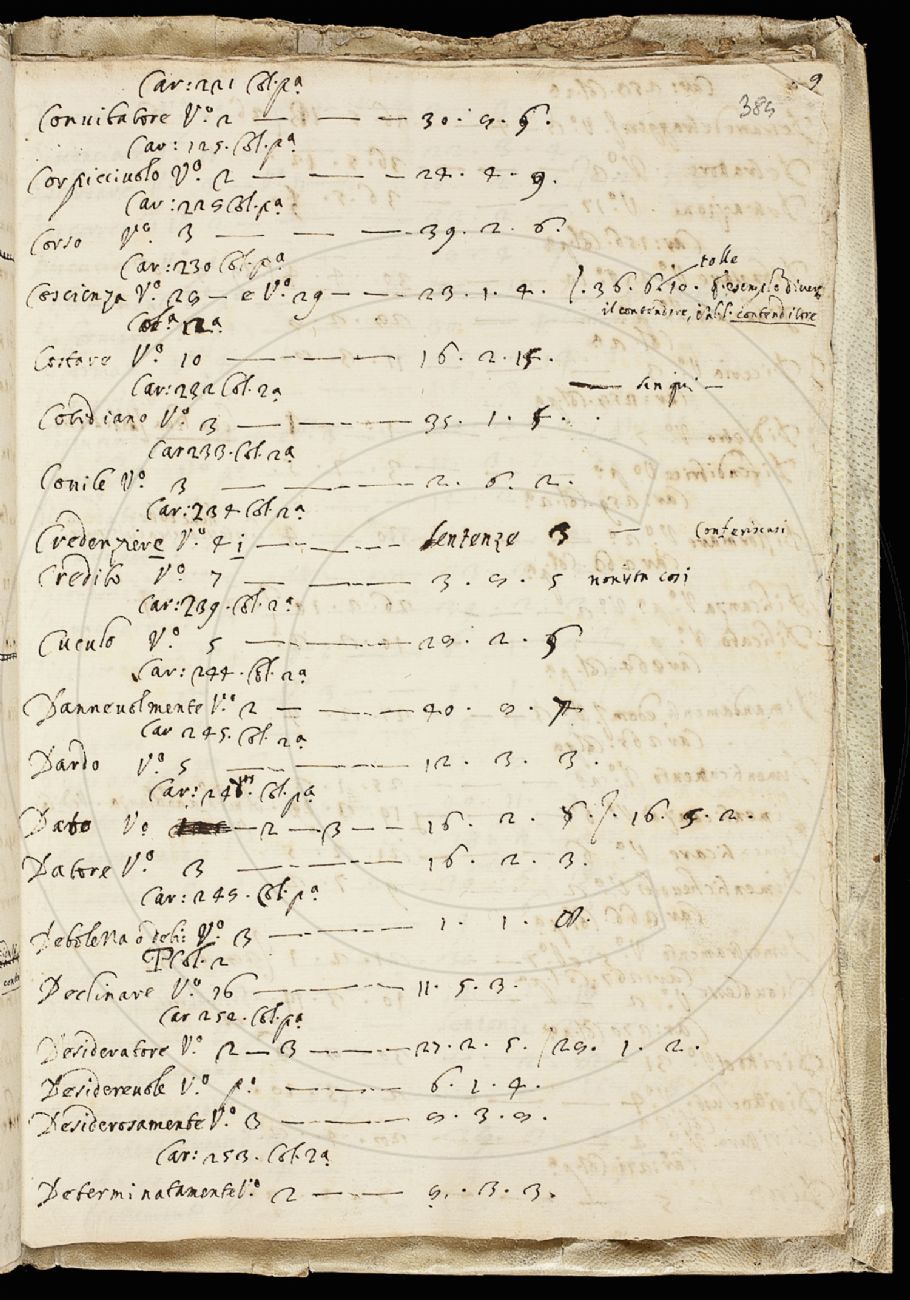 9
389
Car: 221 Col. pª
Conuitatore Vº. 2 — — — 30. 9. 6.
Car: 125. Col. pª
Corpicciuolo Vº. 2 — — — 24. 4. 9.
Car: 229 Col. pª
Corso Vº. 3 — — — 39. 2. 6.
Car: 230 Col. pª
tolle
Coscienza Vº. 29 — e Vº. 29 — — 23. 1. 4. 36. 6. 10.
il contendere, contenditore
Colª 2ª
Costare Vº 10 — — — 16. 2. 15.
Car: 232 Col. 2ª
— sin qui —
Cotidiano Vº. 3 — — — 35. 1. 5.
Car 233. Col. 2ª
Couile Vº. 3 — — — 2. 6. 2.
Car: 234 Col. 2ª
Credenziere Vº. 4 i — — — sentenze 3 — Conferiscasi
Credito Vº 7 — — — 3. 9. 5 non sta cosi
Car: 239. Col. 2ª
Cuculo Vº 5 — — — 29. 2. 6
Car: 244. Col. 2ª
Danneuolmente Vº. 2 — — — 40. 9. 7
Car 245. Col. 2ª
Dardo Vº. 5 — — — 12. 3. 3.
Car: 246. Col. pª
Dato Vº 2 — 3 — — 16. 2. 6. 16. 5. 2.
Datore Vº 3 — — — 16. 2. 3.
Car: 249. Col. pª
Deboletta ò deb: Vº 3 — — — 1. 1. 8.
Col. 2
Declinare Vº. 16 — — — 11. 5. 3.
Car 252. Col. pª
Desideratore Vº. 2 — 3 — — — 27. 2. 5. 29. 1. 2.
Desidereuole Vº pº — — — 6. 1. 4.
Desiderosamente Vº. 3 — — — 9. 3. 9.
Car: 253. Col. 2ª
Determinatamente Vº. 2 — — — 9. 3. 3.